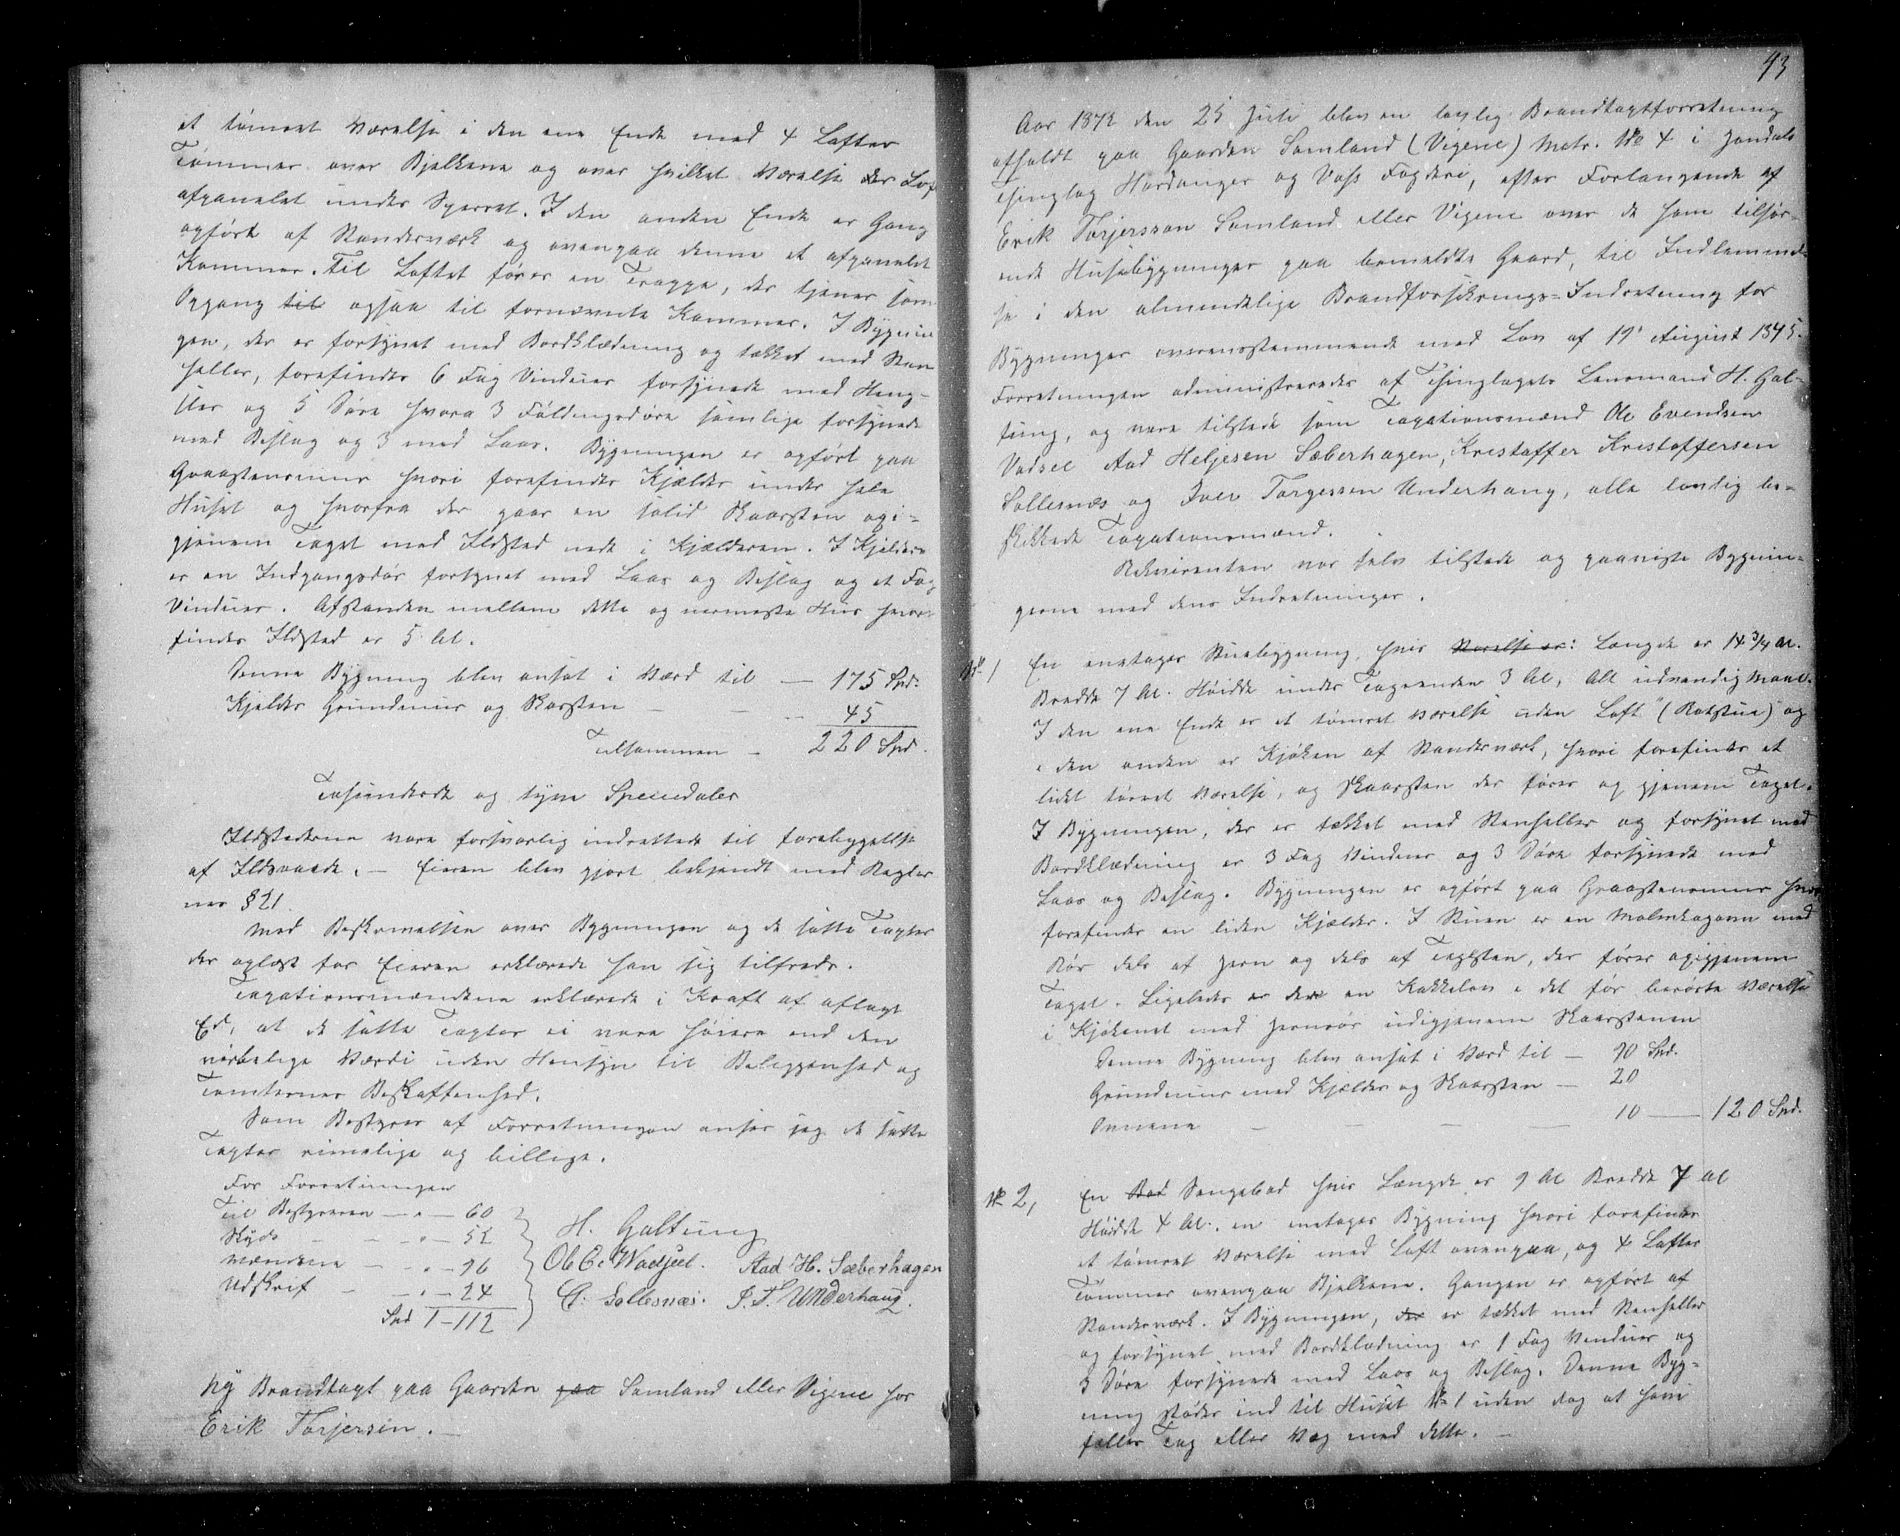 et tømret Værelse i den ene Ende med 4 Lofter
Tømmer over Bjelkene og over hvilket Værelse der Lof
afpanelet under Sperret. I den anden Ende er Gang
opført af Standerværk og ovenpaa denne et afpanelet
Kammer. Til Loftet fører en Trappe, der tjener som
Opgang til ogsaa til fornævnte Kammer. I Bygnin
gen, der er forsynet med Bordklædning og tækket med Sten
heller, forefindes 6 Fag Vinduer forsynede med Heng-
sler og 5 Døre hvora 3 Fyldingsdøre samlige forsynede
med Beslag og 3 med Laas. Bygningen er opført paa
Graastensmur hvori forefindes Kjælder under hele
Huset og hvorfra der gaar en solid Skaarsten op i-
gjenem Taget med Ildsted nede i Kjælderen. I Kjelderen
er en Indgangsdør forsynet med Laas og Beslag og et Fag
Vinduer. Afstanden mellem dette og nermeste Hus hvor-
findes Ildsted er 5 Al.
Denne Bygning blev ansat i Værd til — 175 Spd.
Kjelder Grundmur og Skorsten — — — 45
Tilsammen — 220 Spd.
Tohundrede og tyve Speciedaler
Ildstederne vare forsvarlig indrettede til forebyggelse
af Ildsvaade. — Eieren blev gjort bekjendt med Regler
nes § 21
Med Beskrivelsen over Bygningen og de satte Taxter
der oplæst for Eieren erklærede han sig tilfreds.
Taxationsmændene erklærede i Kraft af aflagt
Ed, at de satte Taxter ei vare høiere end den
virkelige Værdi uden Hensyn til Beliggenhed og
Tomternes Beskaffenhed.
Som Bestyrer af Forretningen anser jeg de satte
Taxter rimelige og billige.
For Forretningen
Til Bestyreren — " — 60
Skyds — — " — 52
Mændene — — " — 96
Udskrift — — " — 24
Spd 1 — 112
H. Galtung
Ol E. Wadsæl. Aad H. Sæberhagen
C. Sollesnæs. J. T. Underhaug.
Ny Brandtaxt paa Gaarden paa Samland eller Vigene hos
Erik Torjersen.
93
Aar 1872 den 25 Juli blev en lovlig Brandtaxtforretning
afholdt paa Gaarden Samland (Vigene) Matr. № 4 i Jondals
Thinglag Hardanger og Voss Fogderi, efter Forlangende af
Erik Torjerssøn Samland eller Vigene over de ham tilhør-
ende Husebygninger paa bemeldte Gaard, til Indlemmel-
se i den almindelige Brandforsikrings-Indretning for
Bygninger overensstemmende med Lov af 19' August 1845.
Forretningen administreredes af Thinglagets Lensmand H. Gal-
tung, og vare tilstede som Taxationsmænd Ole Evendsen
Vadsel Aad Heljesen Sæberhagen, Kristaffer Kristaffersen
Sollesnæs og Iver Torgersen Underhaug, alle lovlig be-
skikkede Taxationsmænd.
Rekvirenten var selv tilstede og paaviste Bygnin-
gerne med dens Indretninger.
№ 1 En enetages Stuebygning, hvis Størrelse er: Længde er 14 3/4 Al.
Bredde 7 Al. Høidde under Tagrenden 3 Al, Alt udvendig Maal.
I den ene Ende er et tømret Værelse uden Loft (Røkstue) og
i den anden er Kjøken af Standerværk, hvori forefindes et
lidet tømret Værelse, og Skaarsten der fører op gjenem Taget.
I Bygningen, der er tækket med Stenheller og forsynet med
Bordklædning er 3 Fag Vinduer og 3 Døre forsynede med
Laas og Beslag. Bygningen er opført paa Graastensmur hvor
forefindes en liden Kjælder. I Stuen er en Malmkagovn med
Rør dels af Jern og dels af Teglsten, der fører opigjenem
Taget. Ligeledes er der en Kakkelov i det før berørte Værelse
i Kjøkenet med Jernrør udigjenem Skaarstenen
Denne Bygning blev ansat i Værd til — 90 Spd.
Grundmur med Kjælder og Skaarsten — 20
Ovnene — — — 10 — 120 Spd.
№ 2, En Bod Sengebod hvis Længde er 9 Al Bredde 7 Al
Høidde 4 Al., en enetages Bygning hvori forefindes
et tømret Værelse med Loft ovenpaa, og 4 Lofter
Tømmer ovenpaa Bjelkene. Gangen er opført af
Standerværk. I Bygningen, der er tækket med Stenheller
og forsynet med Bordklædning er 1 Fag Vinduer og
3 Døre forsynede med Laas og Beslag. Denne Byg-
ning støder ind til Huset № 1 uden dog at have
fælles Tag eller Væg med dette. —